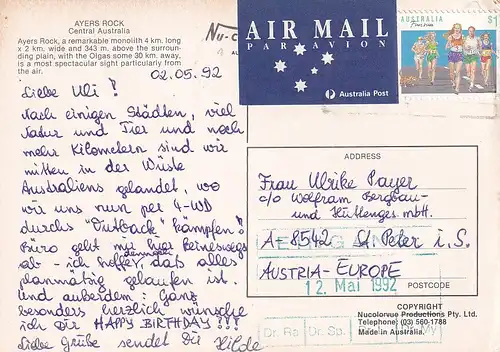 AYERS ROCK
Central Australia
Ayers Rock, a remarkable monolith 4 km. long
x 2 km. wide and 343 m. above the surroun-
ding plain, with the Olgas some 30 km. away,
is a most spectacular sight particularly from
the air.
02.05.92
Liebe Uli !
Nach einigen Städten, viel
Natur und Tier und noch
mehr Kilometern sind wir
mitten in der Wüste
Australiens gelandet, wo
wir uns nun per 4-WD
durchs "Outback" kämpfen!
Büro geht mir hier keineswegs
ab - ich hoffe, dennoch daß alles
planmäßig gelaufen ist.
Und außerdem: Ganz
besonders herzlich wünsche
ich Dir HAPPY BIRTHDAY!!!
Liebe Grüße sendet Dir Hilde
AIR MAIL
PAR AVION
Australia Post
AUSTRALIA
$1
Fun Run
ADDRESS
Frau Ulrike Payer
c/o Wolfram Bergbau-
und Hüttenges. mbH.
A-8542 St. Peter i. S.
AUSTRIA-EUROPE
12. Mai 1992
POSTCODE
COPYRIGHT
Nucolorvue Productions Pty. Ltd.
Telephone: (03) 560-1788
Made in Australia.
Dr. Ra Dr. Sp. My